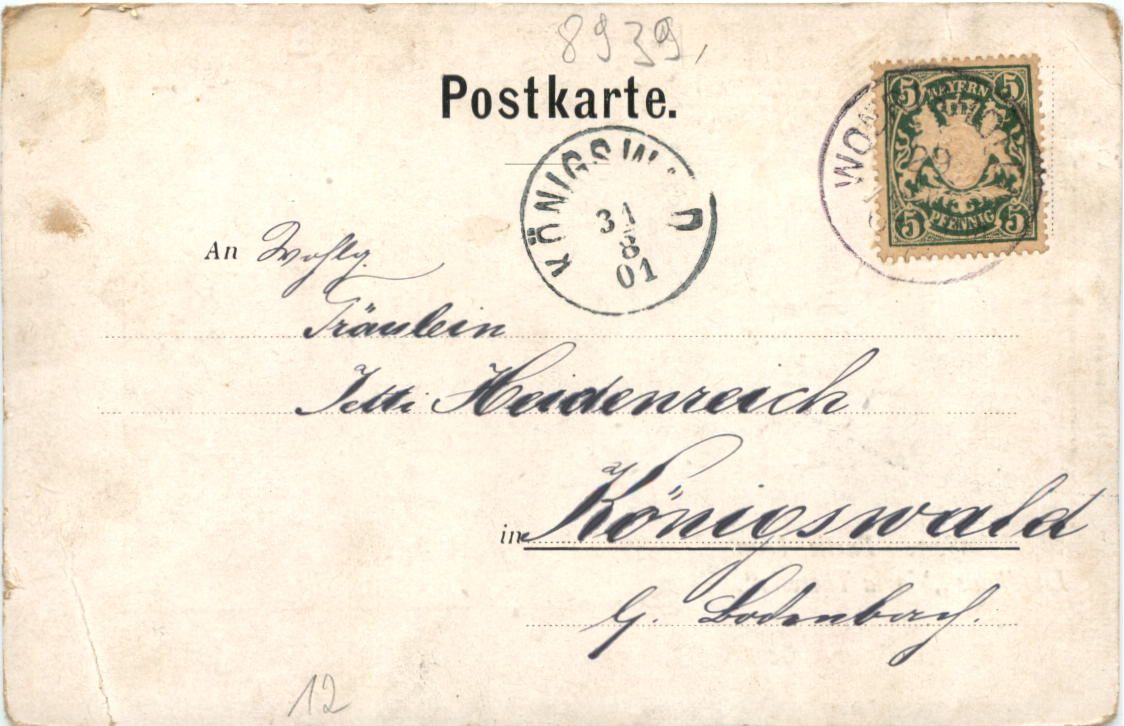 8939,
Postkarte.
BAYERN
5 5
5 PFENNIG 5
WO
29
KÖNIGSWALD
31
8
01
An Wohlg.
Fräulein
Jetti Heidenreich
in Königswald
b/. Bodenbach.
12